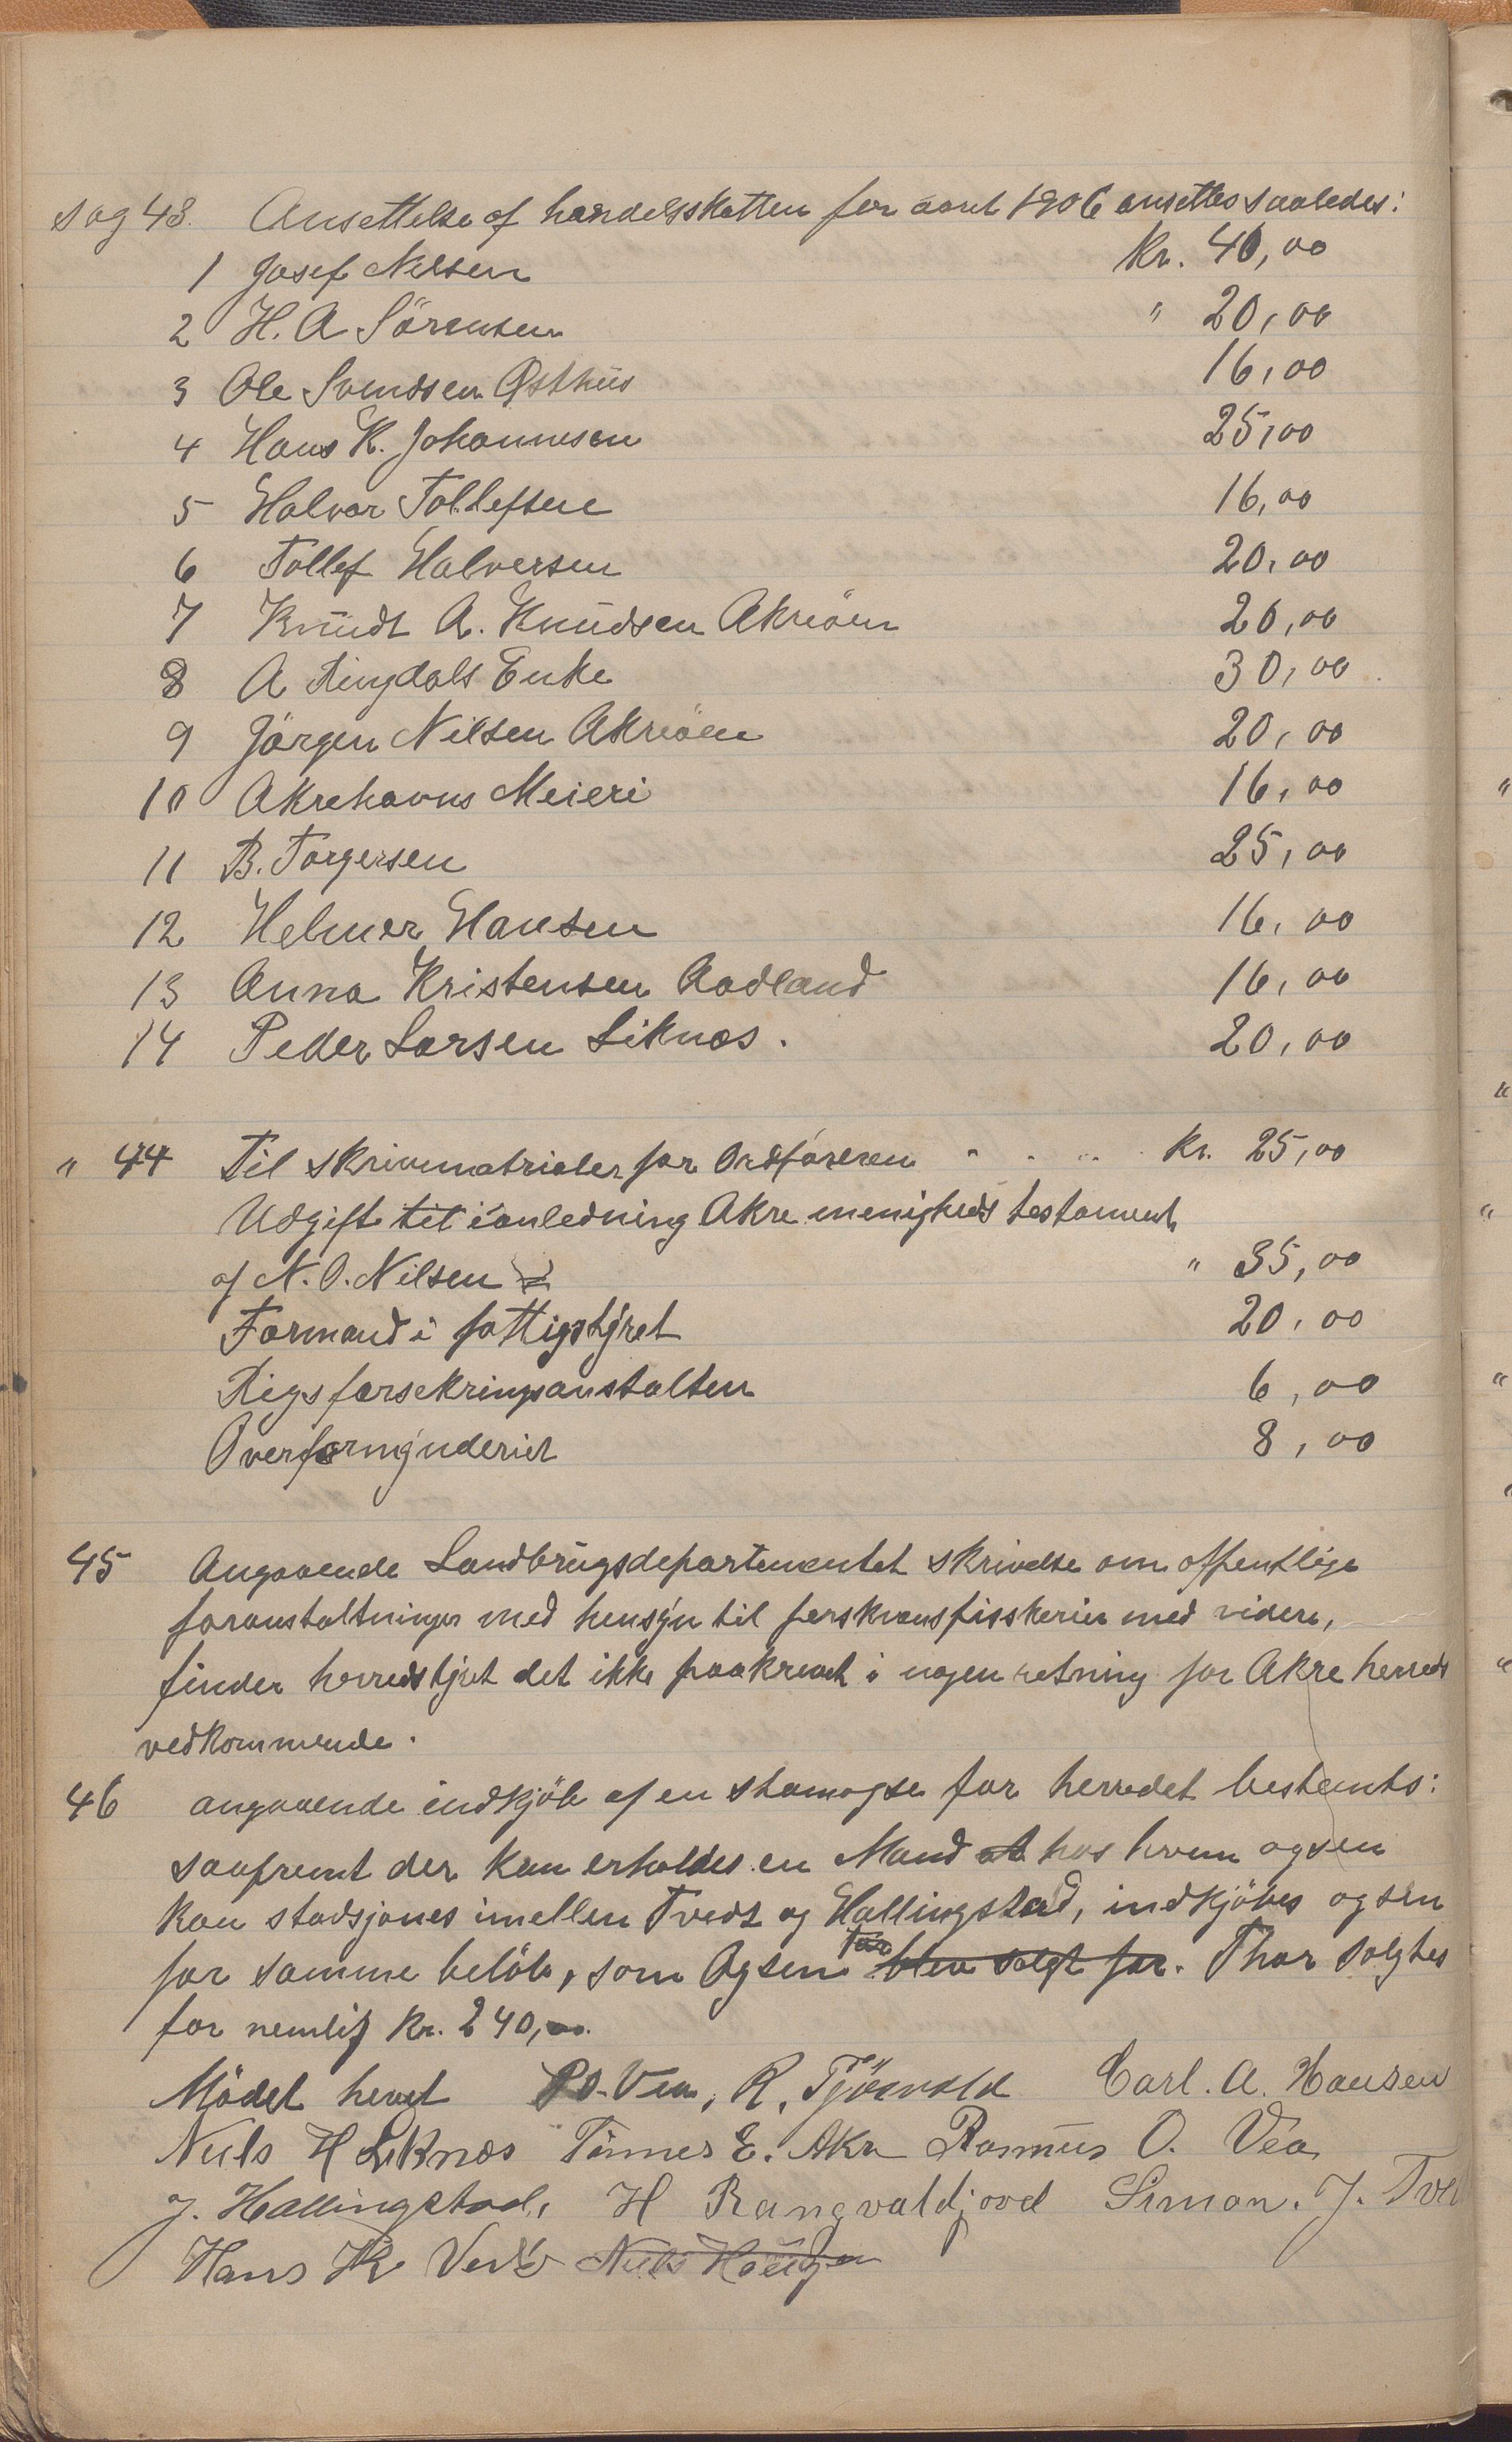 Sag 43. Ansettelse af handelsskatten for aaret 1906 ansettes saaledes:
1 Josef Nelsen Kr. 40,00
2 H. A Sörensen " 20,00
3 Ole Svendsen Østhus 16,00
4 Hans K. Johannesen 25,00
5 Halvor Tollefsen 16,00
6 Tollef Halversen 20,00
7 Knudt A. Knudsen Akreöen 20,00
8 A Ringdals Enke 30,00
9 Jörgen Nilsen Akreöen 20,00
10 Akrehavns Meieri 16,00
11 B. Torgersen 25,00
12 Helmer Hansen 16,00
13 Anna Kristensen Aadland 16,00
14 Peder Larsen Liknes. 20,00
" 44 Til skrivematrialer for Ordföreren " . " . Kr. 25,00
Udgift til i anledning Akre menigheds testament
af N. O. Nilsen " 35,00
Formand i fattigstyret 20,00
Rigsforsekringsanstalten 6,00
Overformynderiet 8,00
45 Angaaende Landbrugsdepartementet skrivelse om offentlige
foranstaltninger med hensyn til ferskvansfisskerier med videre,
finder herredstyret det ikke paakrevet i nogen retning for Akre herreds
vedkommende.
46 angaaende indkjöb af en stamogse for herredet bestemtes:
saafremt der kan erholdes en Mand at hos hvem ogsen
kan stadsjones imellen Tvedt og Hallingstad, indkjöbes ogsen
for samme belöb, som Ogsen Tor blev solgt for. Thor solgtes
for nemlig Kr. 240,00.
Mödet hevet P O. Vea, R. Tjösvold Carl. A. Hansen
Nils H Liknes Tönnes E. Akre Rasmus O. Vea
J. Hallingstad, H Rangvaldjord Simon. J. Tve
Hans K Vedö Nils Hauge